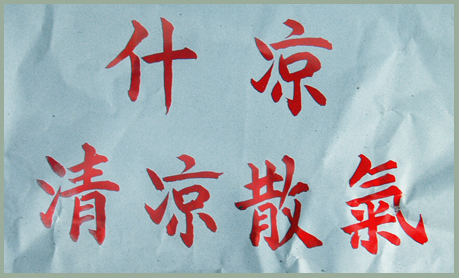 什凉
清凉散氣